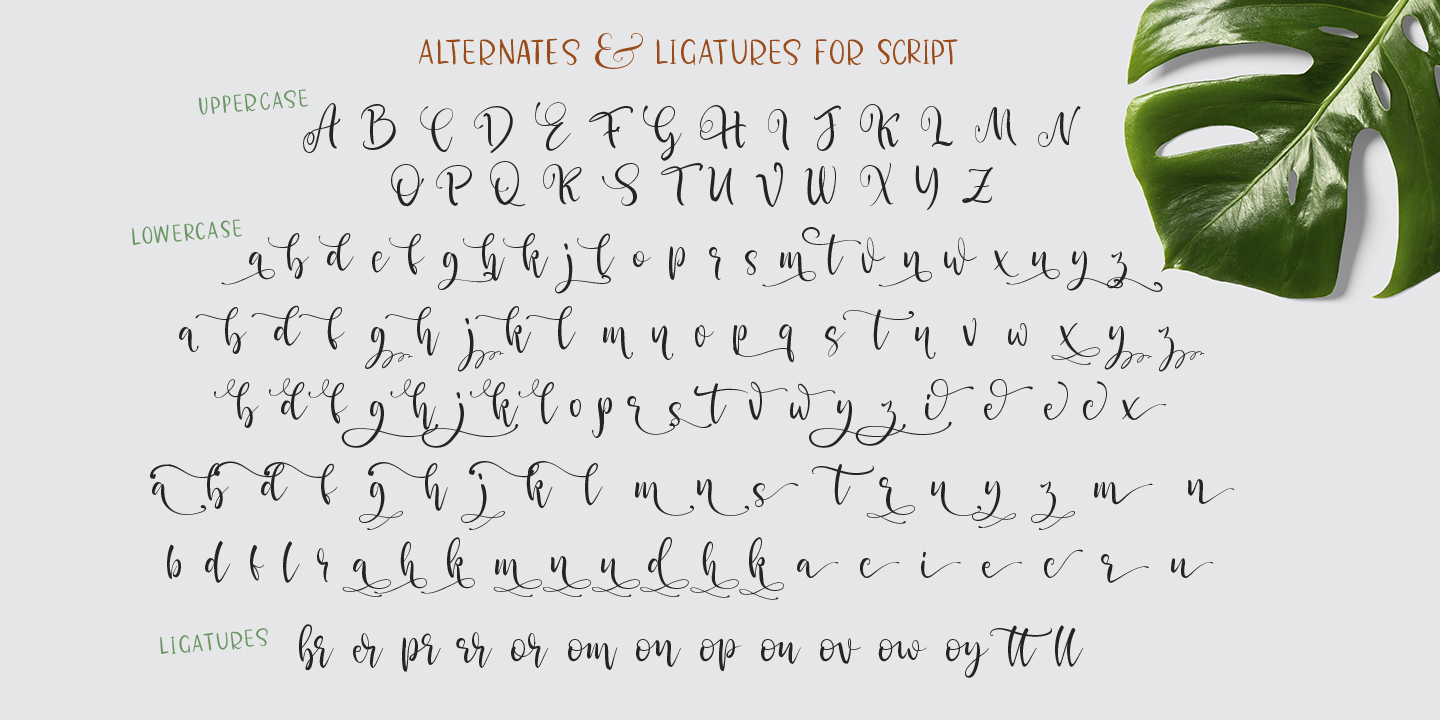 ALTERNATES & LIGATURES FOR SCRIPT
UPPERCASE
A B C D E F G H I J K L M N
O P Q R S T U V W X Y Z
LOWERCASE
a b d e f g h k j l o p r s m t v n w x u y z
a b d f g h j k l m n o p q s t u v w x y z
b d f g h j k l o p r s t v w y z i e e c x
a b d f g h j k l m n s t r u y z m n
b d f l r a h k m n u d h k a c i e c r u
LIGATURES
br er pr rr or om on op ou ov ow oy tt ll